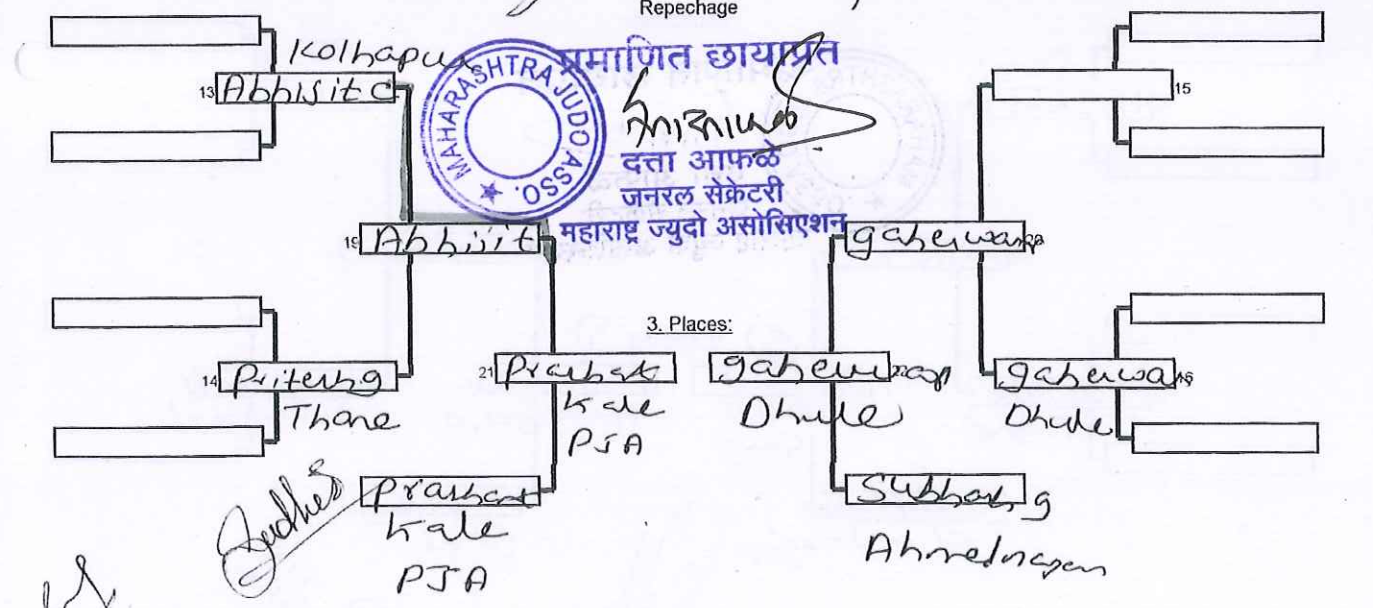 Repechage
Kolhapur
प्रमाणित छायाप्रत
13 Abhisit C
15
MAHARASHTRA JUDO ASSO.
दत्ता आफळे
जनरल सेक्रेटरी
महाराष्ट्र ज्युदो असोसिएशन
19 Abhisit
gaherwar
3. Places:
14 Pritesh g
Thane
21 Prashant
Kale
PJA
gaherwar
Dhule
gaherwa 16
Dhule
Prashant
Kale
PJA
Subhash g
Ahmednagar